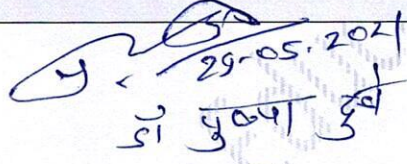 29-05-2021
डॉ पुष्पा दुबे